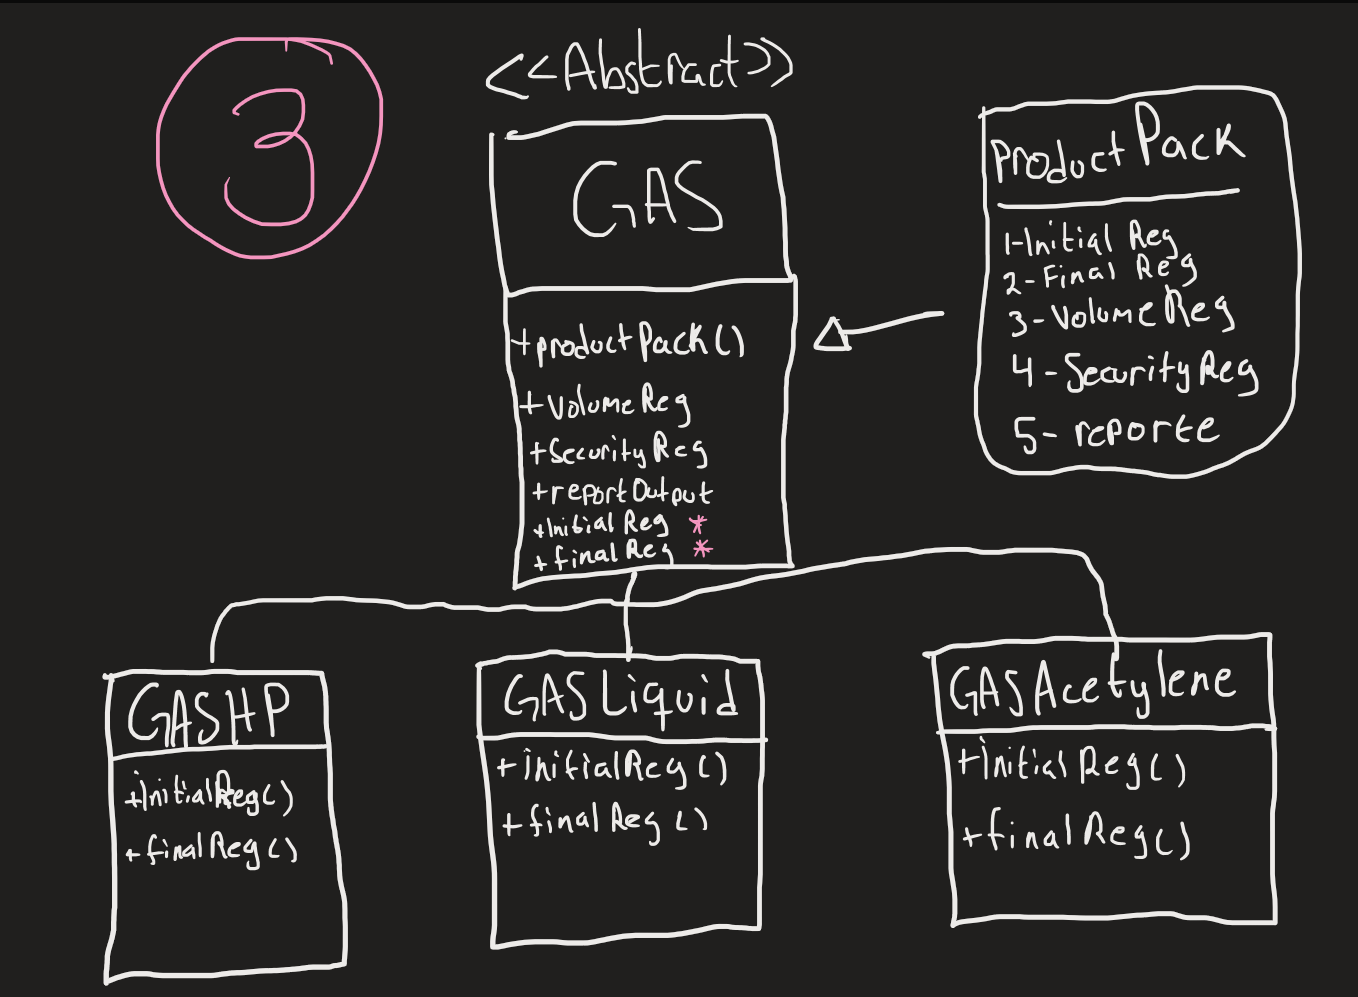 3
<<Abstract>>
GAS
+productPack()
+VolumeReg
+SecurityReg
+reportOutput
+InitialReg *
+finalReg *
ProductPack
1-Initial Reg
2-Final Reg
3-VolumeReg
4-SecurityReg
5-reporte
GASHP
+InitialReg()
+finalReg()
GASLiquid
+initialReg()
+finalReg()
GASAcetylene
+InitialReg()
+finalReg()